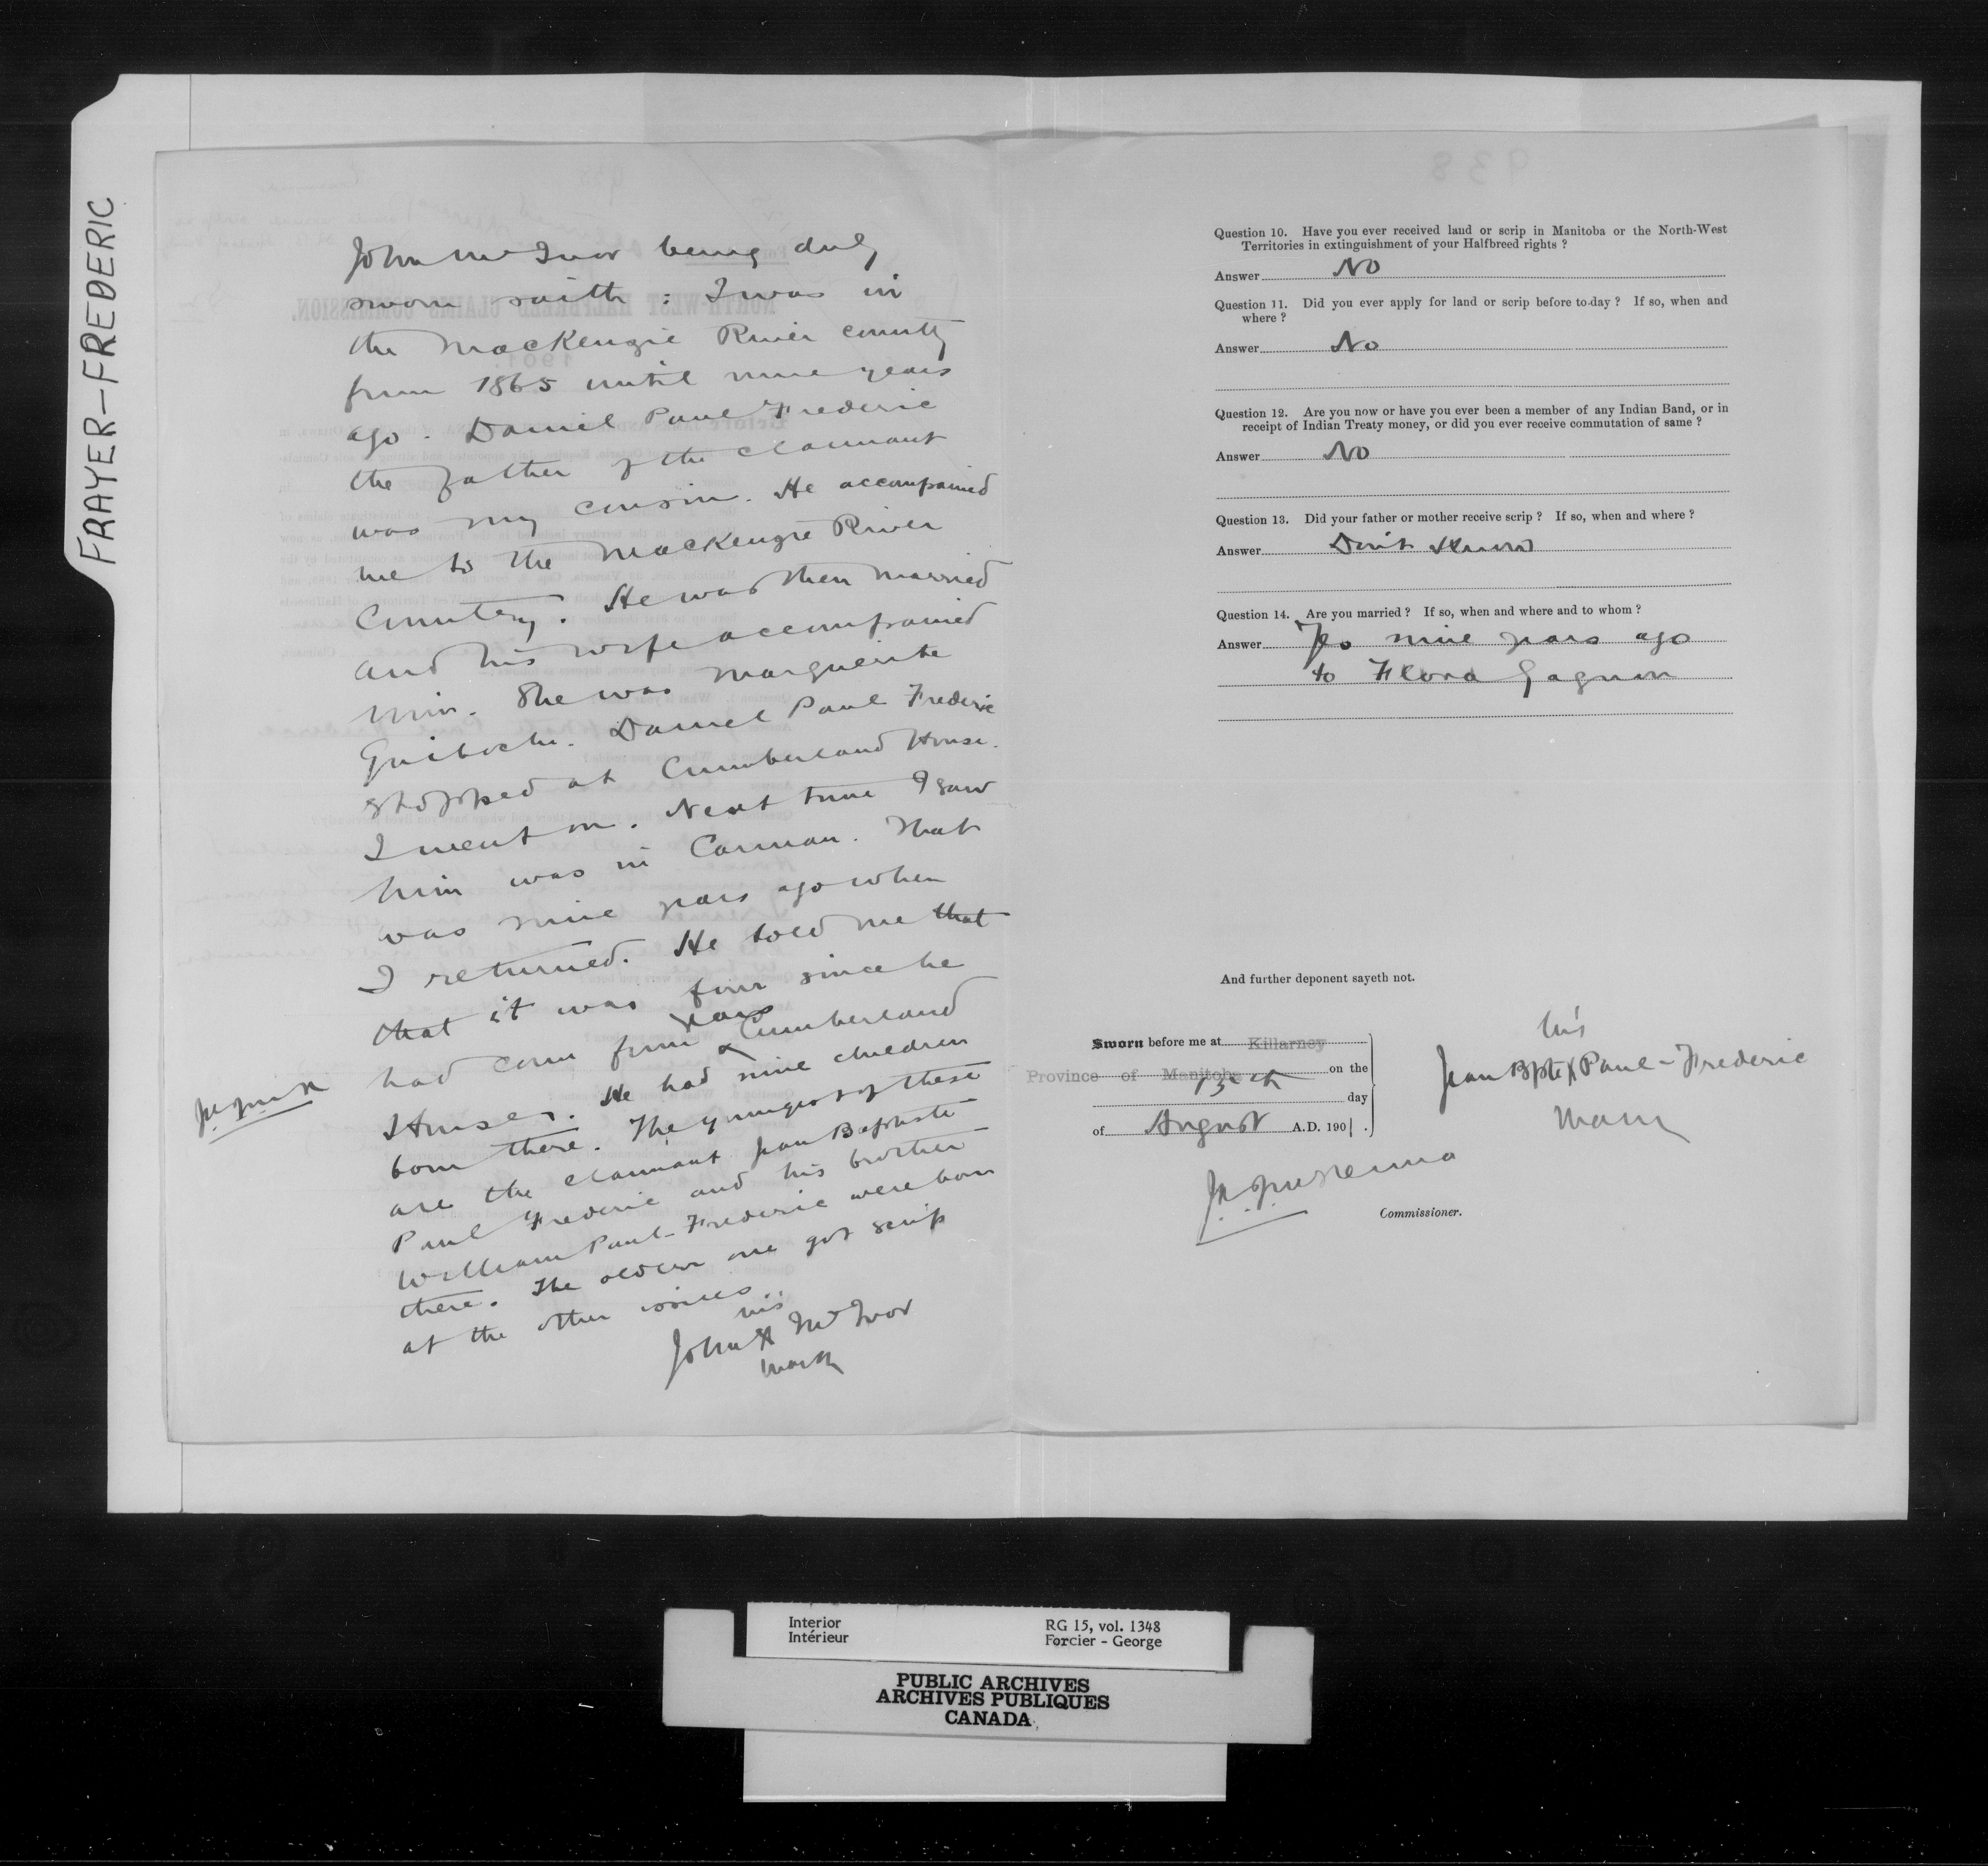 FRAYER-FREDERIC
John McIvor being duly
sworn saith: I was in
the MacKenzie River country
from 1865 until nine years
ago. Daniel Paul Frederic
the father of the claimant
was my cousin. He accompained
me to the MacKenzie River
Country. He was then married
and his wife accompained
him. She was Marguerite
Guiboche. Daniel Paul Frederic
stopped at Cumberland House.
I went on. Next time I saw
him was in Carman. That
was nine years ago when
I returned. He told me that
that it was four since he
years
had come from Cumberland
House. He had nine children
born there. The youngest of these
are the claimant Jean Baptiste
Paul Frederic and his brother
William Paul-Frederic were born
there. The older one got scrip
at the other issues.
his
John X McIvor
mark
938
Question 10. Have you ever received land or scrip in Manitoba or the North-West
Territories in extinguishment of your Halfbreed rights ?
Answer No
Question 11. Did you ever apply for land or scrip before to-day ? If so, when and
where ?
Answer No
Question 12. Are you now or have you ever been a member of any Indian Band, or in
receipt of Indian Treaty money, or did you ever receive commutation of same ?
Answer No
Question 13. Did your father or mother receive scrip ? If so, when and where ?
Answer Don't Know
Question 14. Are you married ? If so, when and where and to whom ?
Answer Yes nine years ago
to Flora Gagnon
And further deponent sayeth not.
Sworn before me at Killarney
Province of Manitoba on the
13th day
of August A.D. 1901.
his
Jean Bpte X Paul-Frederic
Mark
Commissioner.
Interior
Intérieur
RG 15, vol. 1348
Forcier - George
PUBLIC ARCHIVES
ARCHIVES PUBLIQUES
CANADA